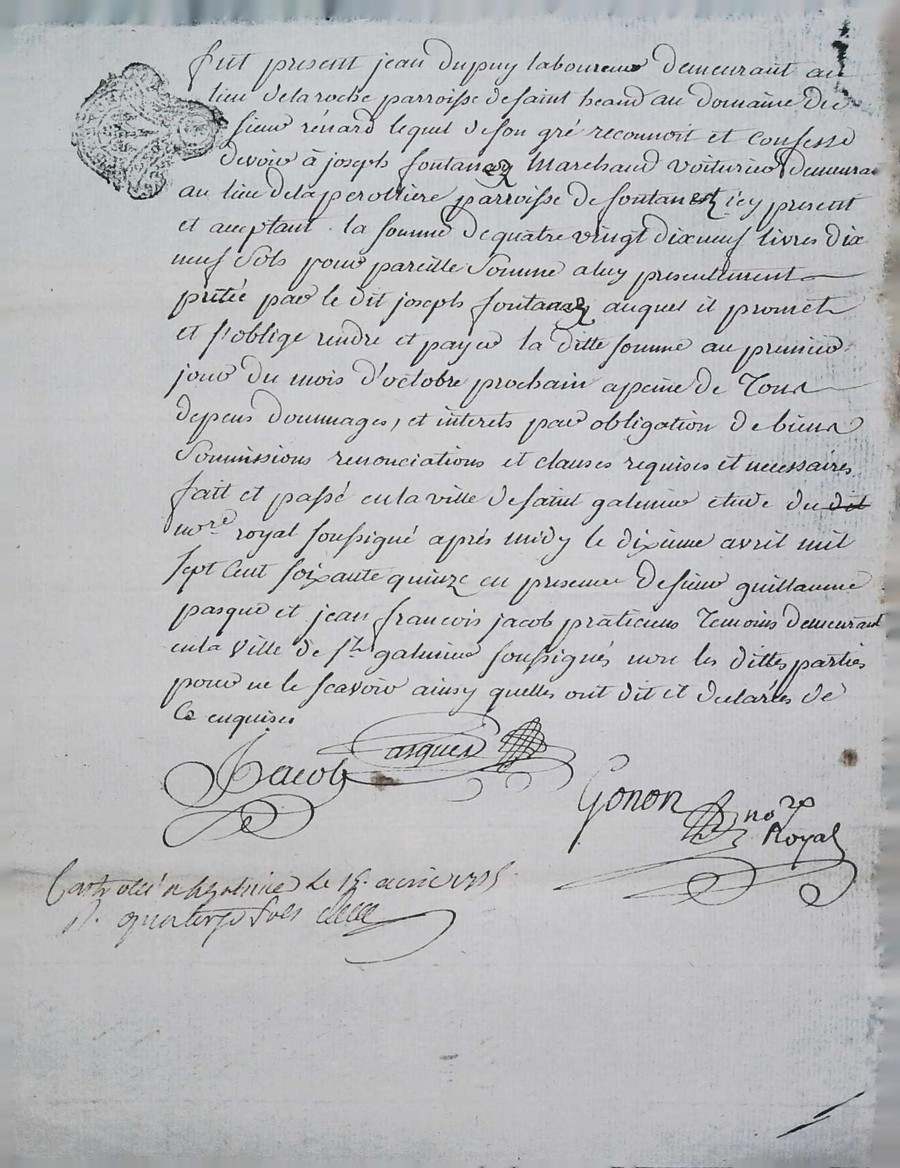 fut present jean dupuy laboureur demeurant au
lieu delaroche parroisse desaint heand au domaine du
sieur rénard lequel deson gré reconnoit et confesse
devoir à joseph fontanay Marchand voiturier demeurant
au lieu delaperolliere parroisse de fontanest icy present
et acceptant la somme dequatre vingt dixneuf livres dix
neuf sols pour pareille somme aluy presentement
prétée par le dit joseph fontanay auquel il promet
et s'oblige rendre et payer la ditte somme au premier
jour du mois d'octobre prochain apeine de Tous
depens dommages, et interets par obligation de biens
Sommissions renonciations et clauses requises et necessaires
fait et passé enla ville desaint galmier etude du dit
nore royal soussigné aprés midy le dixieme avril mil
sept cent soixante quinze en presence desieur guillaume
pasque et jean francois jacob praticiens Temoins demeurant
enla ville de St galmier soussignés non les dittes parties
pour ne le scavoir ainsy quelles ont dit et declarées de
ce enquises
Jacob Pasques
Gonon nore
Royal
le 15 avril 1775
quatorze sols